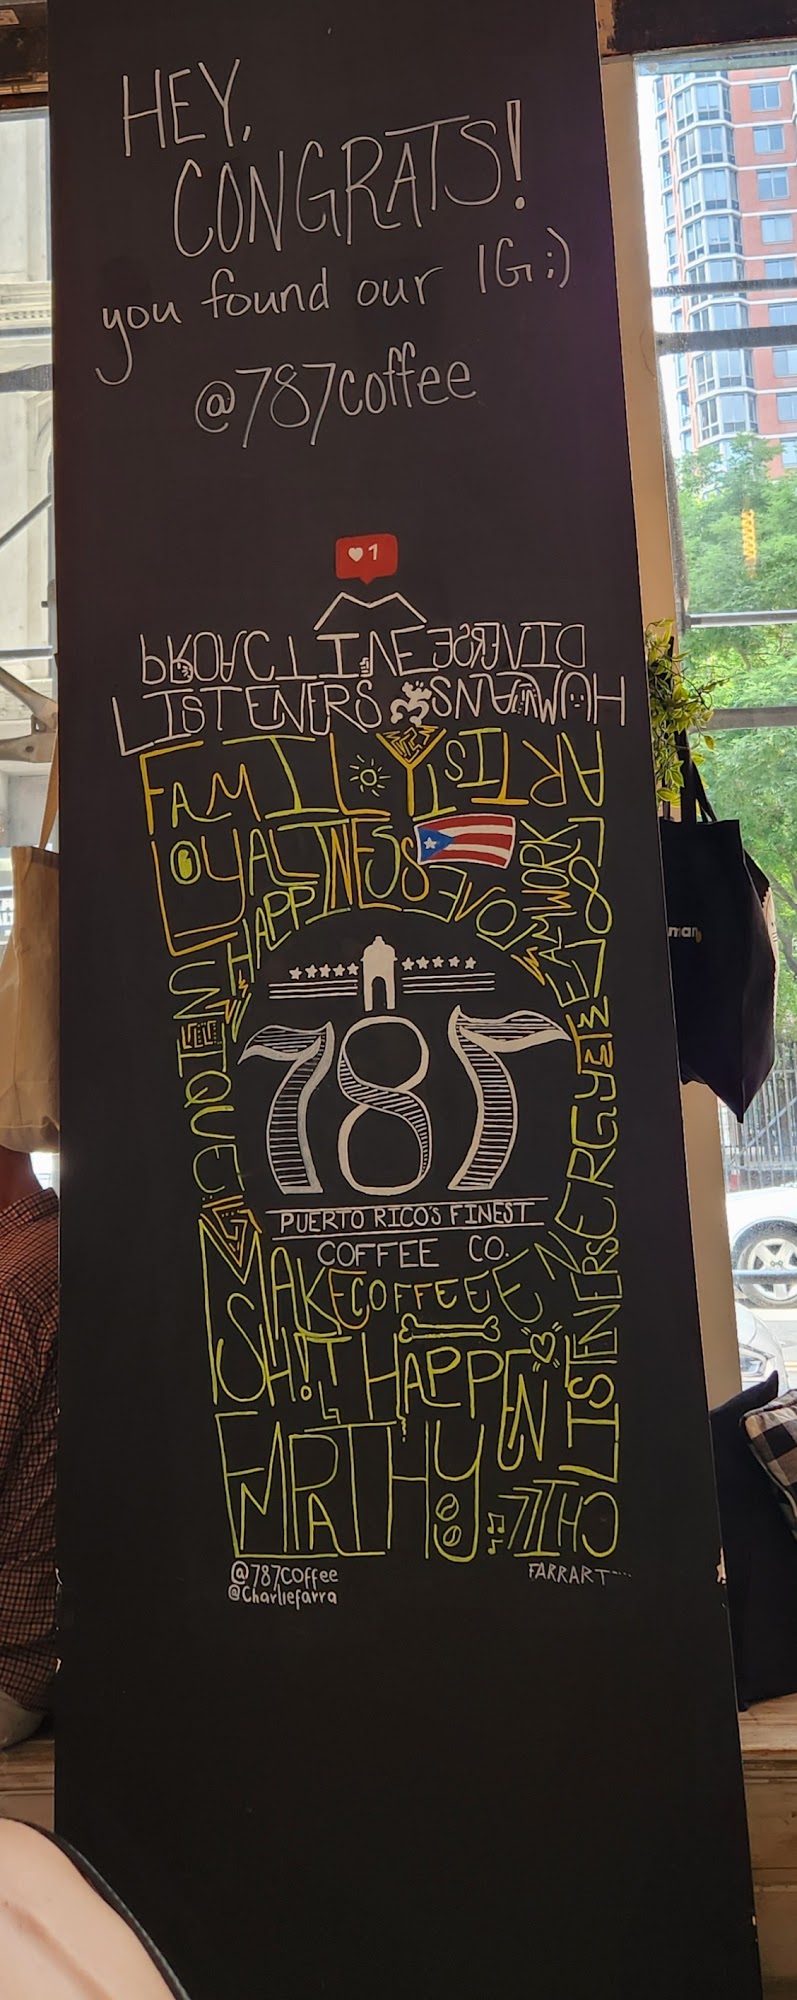 HEY,
CONGRATS!
you found our IG :)
@787coffee
1
PROACTIVE DIVERSE
LISTENERS HUMANS
FAMILY ARTIST
LOYAL
HAPPINESS
ONE
TEAMWORK
UNIQUE
ENERGY
787
PUERTO RICO'S FINEST
COFFEE CO.
MAKE COFFEE
SH!T HAPPEN
LISTENERS
EMPATHY
CHILL
@787Coffee
@Charliefarra
FARRART
man